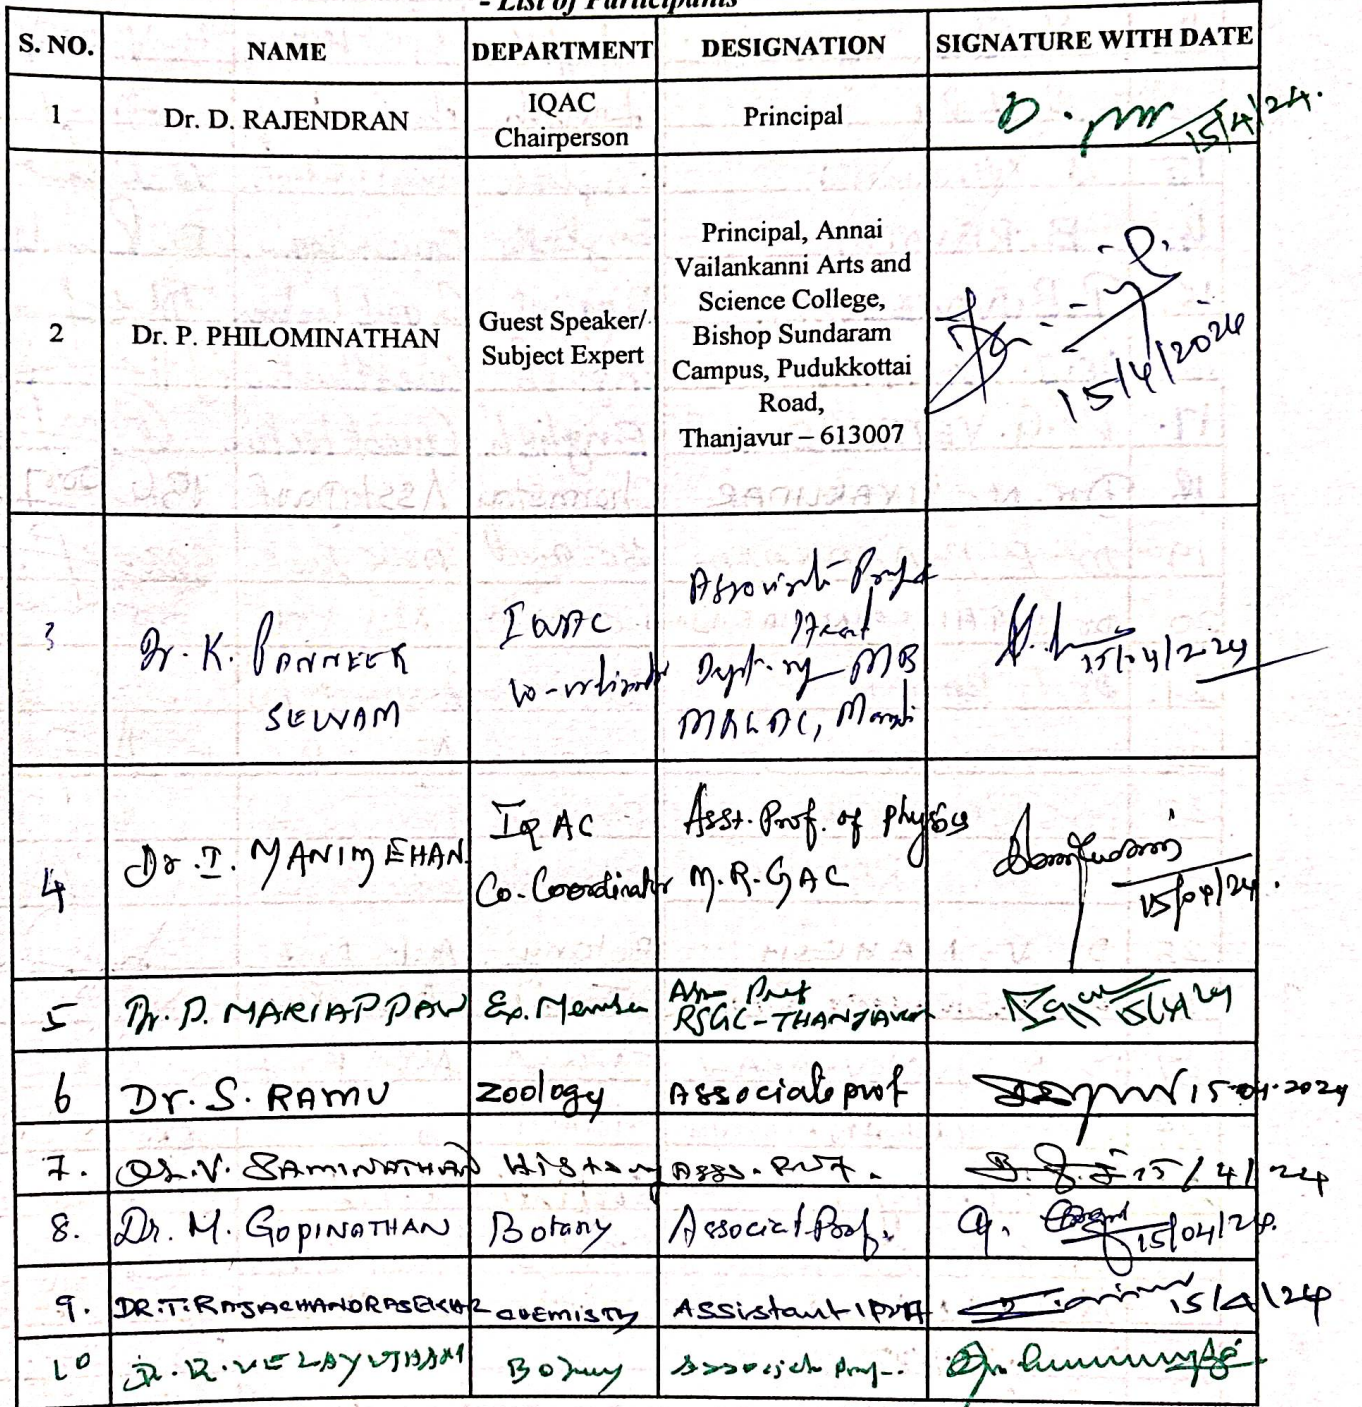 - List of Participants
S. NO. NAME DEPARTMENT DESIGNATION SIGNATURE WITH DATE
1 Dr. D. RAJENDRAN IQAC Chairperson Principal D. 15/4/24.
2 Dr. P. PHILOMINATHAN Guest Speaker/ Subject Expert Principal, Annai
Vailankanni Arts and
Science College,
Bishop Sundaram
Campus, Pudukkottai
Road,
Thanjavur – 613007
15/4/2024
3 Dr. K. PANNEER
SELVAM
IQAC
Co-ordinator
Associate Prof &
Head
Dept. of MB
15/04/2024
4 Dr. I. MANIMEHAN
IQAC
Co-Coordinator
Asst. Prof. of physics
M.R.GAC
15/04/24.
5 Dr. P. MARIAPPAN Ex. Member Prof
RSGC-THANJAVUR 15/4/24
6 Dr. S. RAMU Zoology Associate prof 15-04-2024
7. V. SAMINATHAN History Asso. Prof. 15/4/24
8. Dr. M. GOPINATHAN Botany Associat Prof. 15/04/24.
9. DR.T.RAJACHANDRASEKAR CHEMISTRY Assistant prof 15/4/24
10 R. VELAYUTHAM Botany Associate prof.